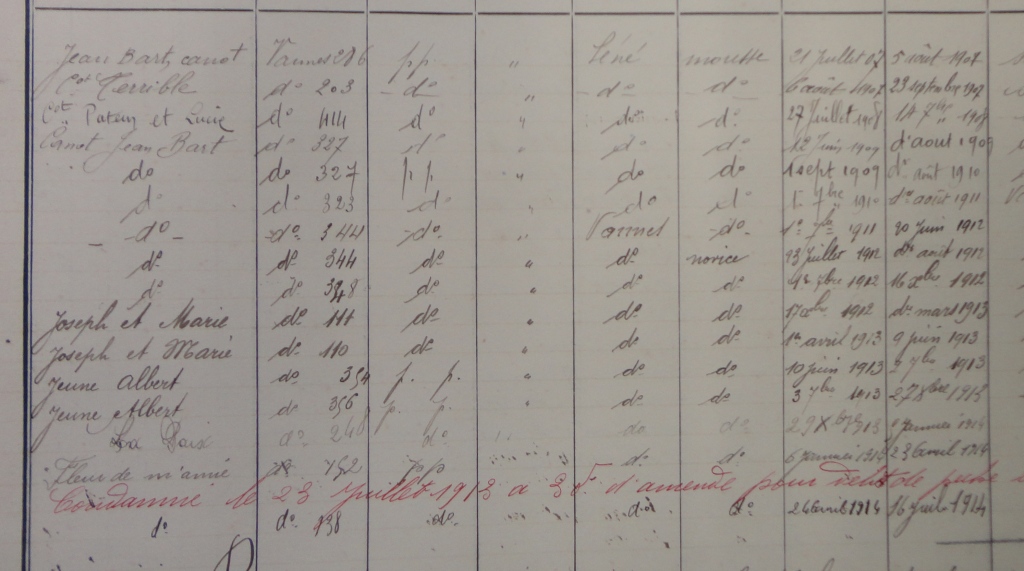 Jean Bart, canot Vannes 286 pp. " Séné mousse 21 juillet 07 5 août 1907
Cot Terrible do 203 do " do do 6 août 1907 23 septembre 1907
Cot Patem et Lucie do 414 do " do do 27 juillet 1908 14 7bre 1908
Canot Jean Bart do 327 do " do do 12 juin 1909 d'aout 1909
do do 327 pp " do do 1 sept 1909 do août 1910
do do 323 do " do do 7bre 1910 do août 1911
- do - do 344 do " Vannes do 1911 30 juin 1912
do do 344 do " do novice 23 juillet 1912 do août 1912
do do 348 do " do do 7bre 1912 16 Xbre 1912
Joseph et Marie do 111 do " do do 17 Xbre 1912 do mars 1913
Joseph et Marie do 110 do " do do 1er avril 1913 9 juin 1913
Jeune Albert do 354 p. p. " do do 10 juin 1913 2 7bre 1913
Jeune Albert do 356 p. p. " do do 3 7bre 1913 27 8bre 1913
La Paix do 248 do do do 29 Xbre 1913 janvier 1914
Fleur de m'amie 152 pp do do 6 janvier 23 avril 1914
Condamné le 23 Juillet 1913 a 3 f. d'amende pour délit de pêche
do do 138 do do do 24 avril 1914 16 juil 1914